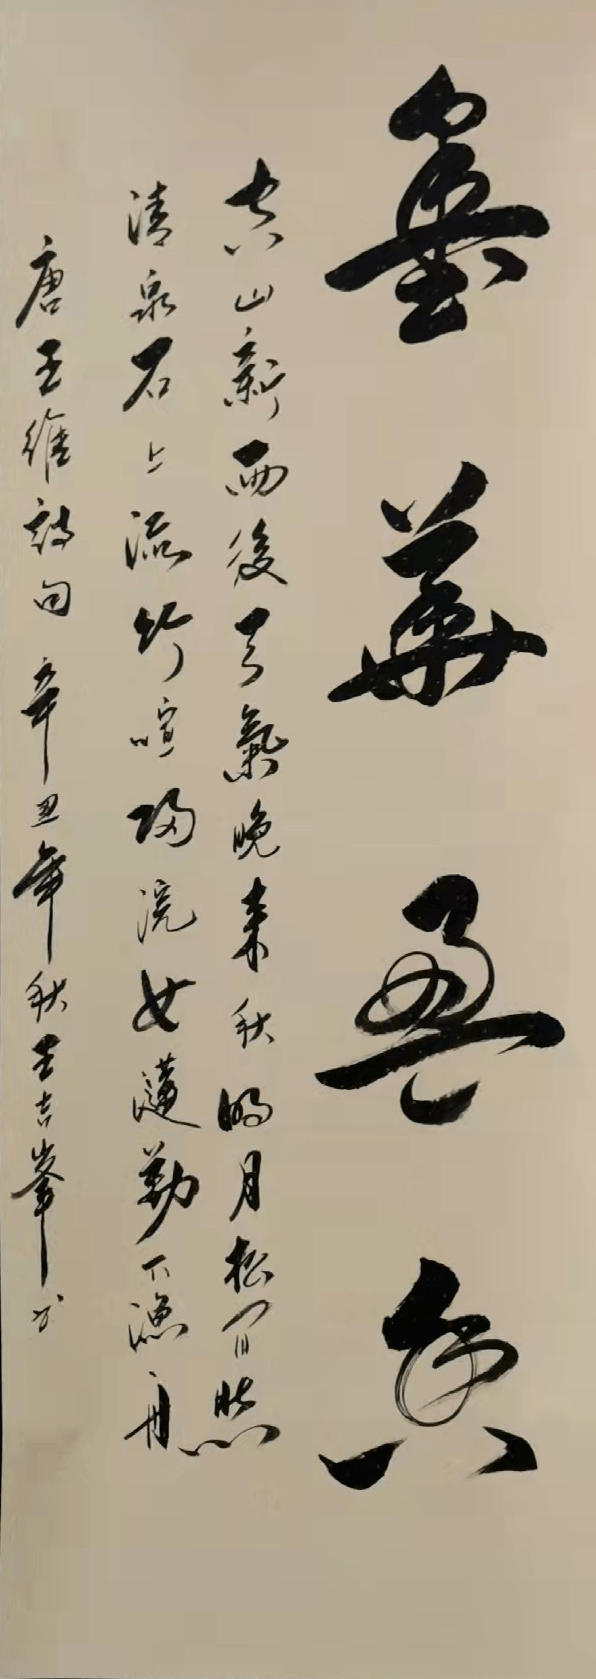 墨華
空山新雨後天氣晚來秋明月松間照
清泉石上流竹喧歸浣女蓮動下漁舟
唐王維詩句 辛丑年秋 吉峯书